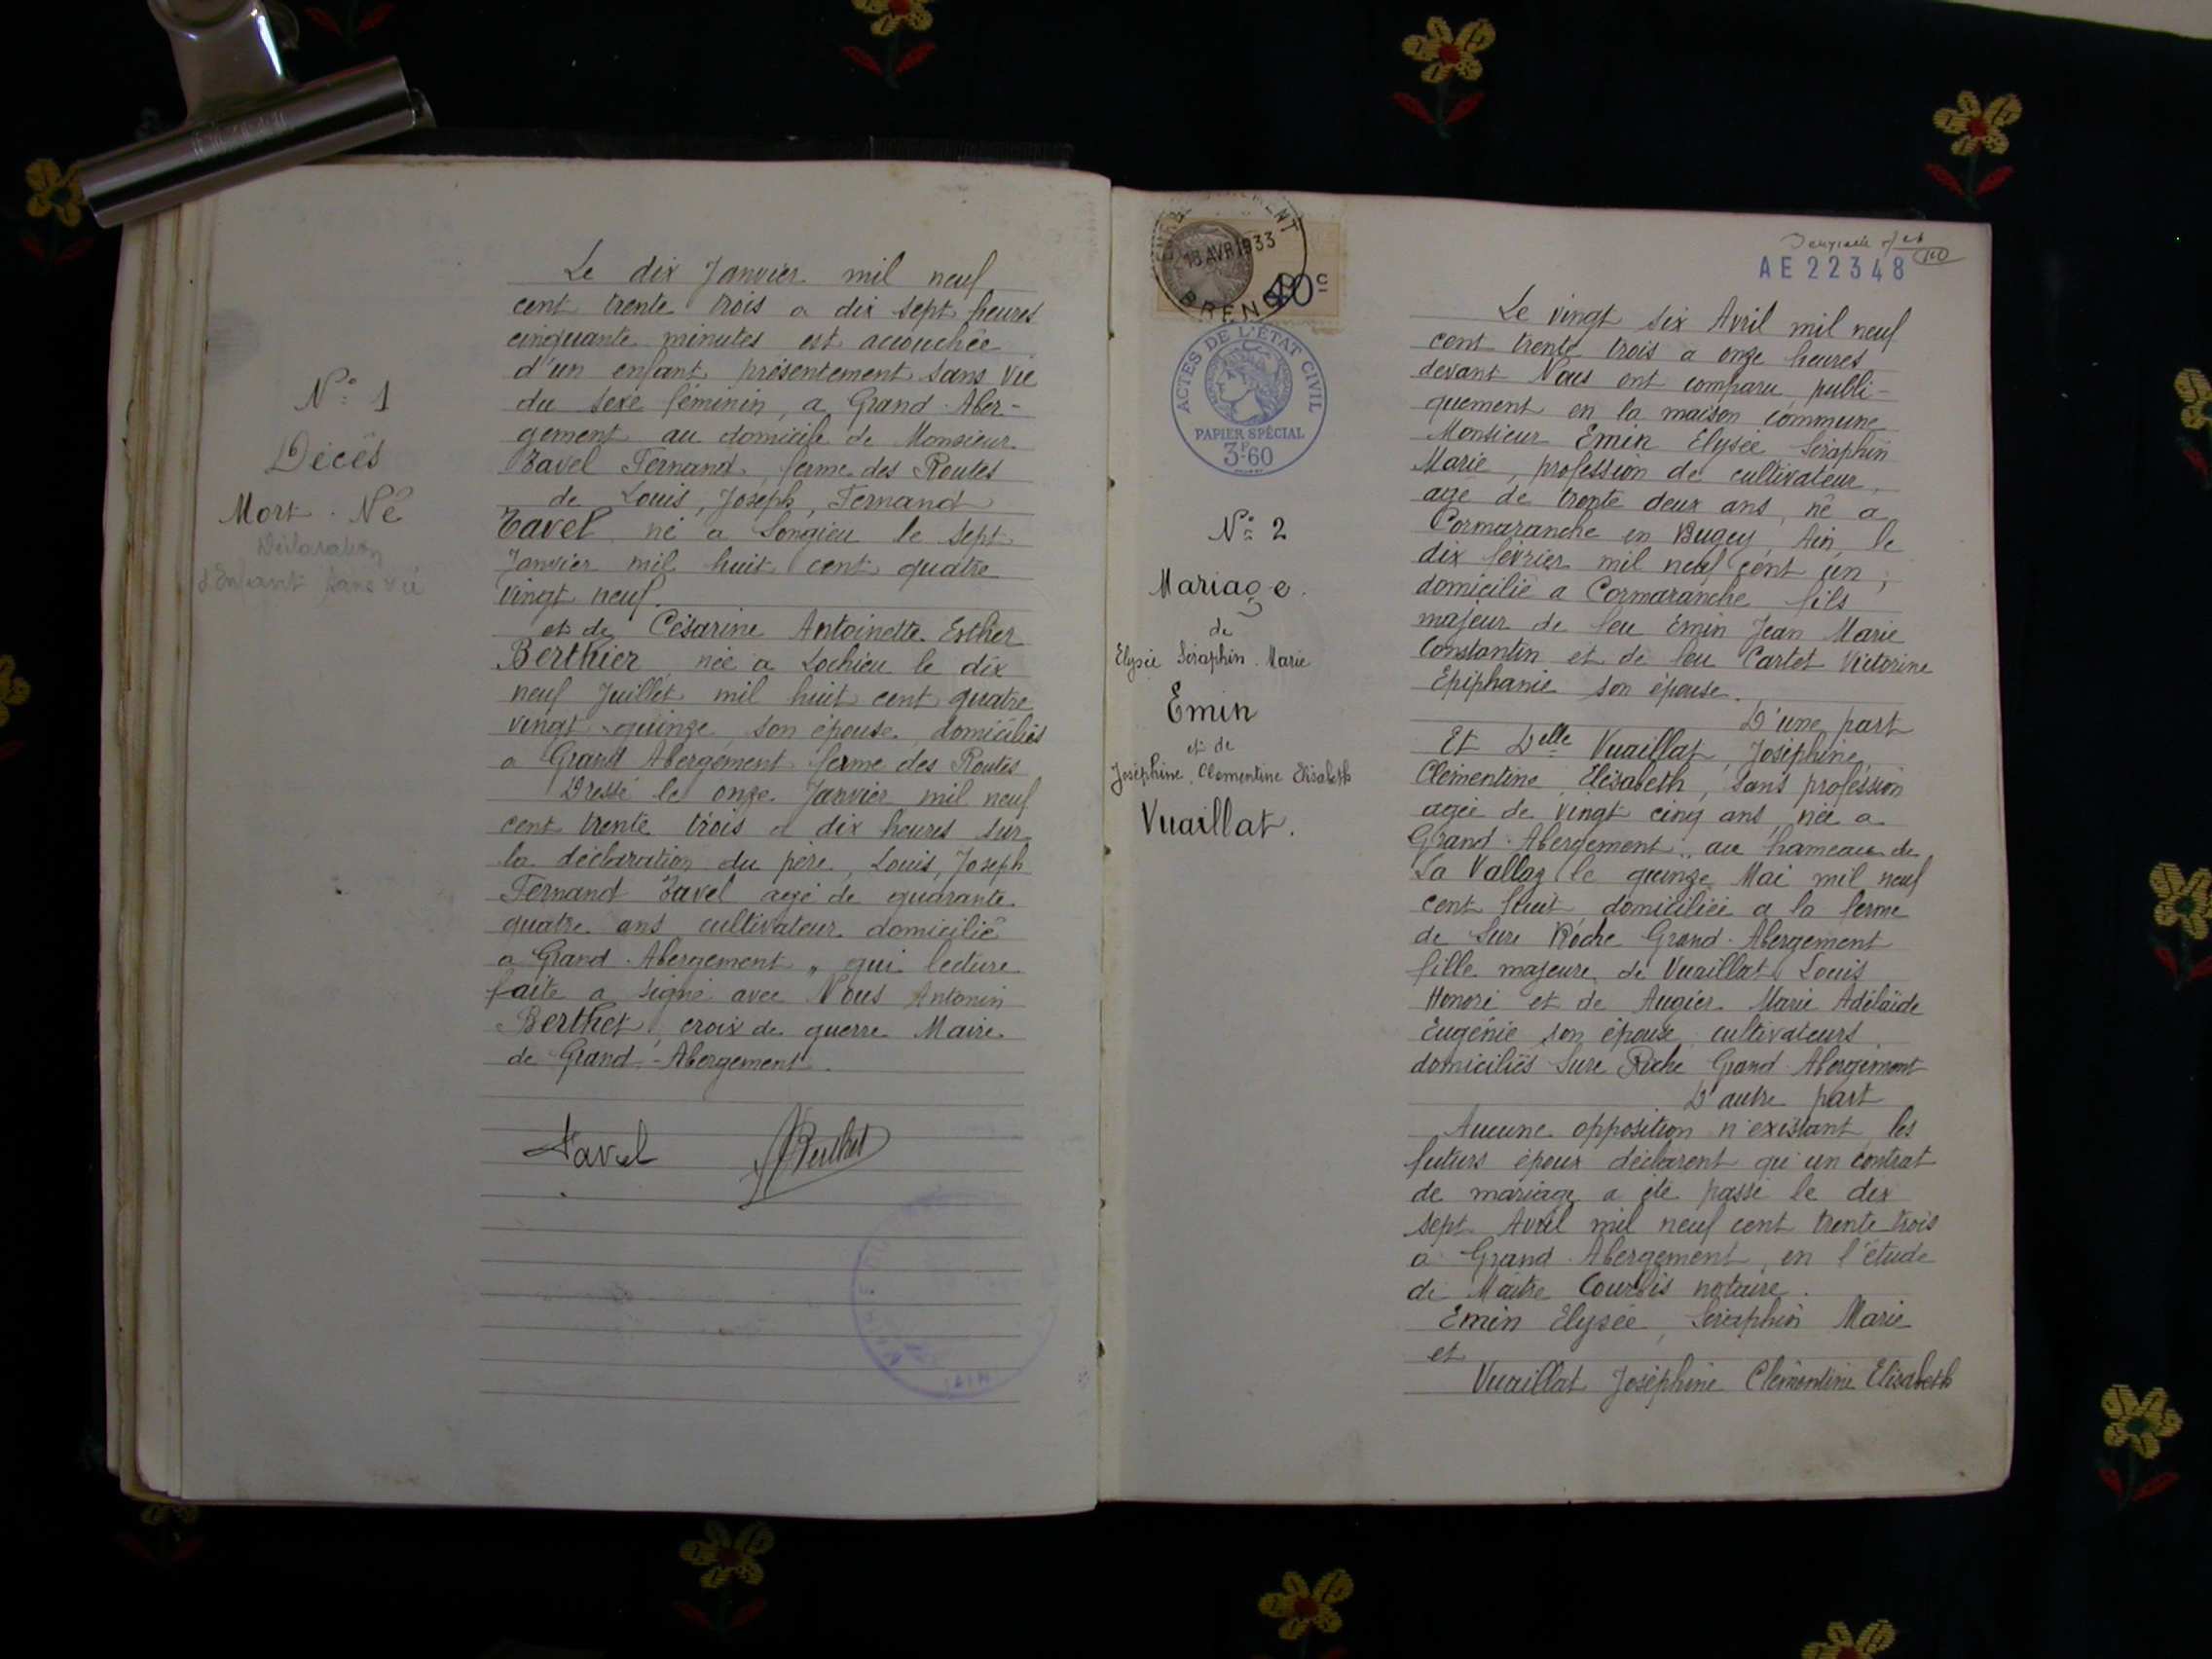 N° 1
Décès
Mort-Né
Déclaration
d'Enfant sans vie
Le dix Janvier mil neuf
cent trente trois a dix sept heures
cinquante minutes est accouchée
d'un enfant présentement sans vie
du sexe féminin, a Grand-Aber-
gement au domicile de Monsieur
Tavel Fernand, ferme des Routes
de Louis, Joseph, Fernand
Tavel né a Songieu le sept
Janvier mil huit cent quatre
vingt neuf.
et de Césarine Antoinette Esther
Berthier née a Lochieu le dix
neuf Juillet mil huit cent quatre
vingt quinze, son épouse, domiciliés
a Grand Abergement ferme des Routes
Dressé le onze Janvier mil neuf
cent trente trois a dix heures sur
la déclaration du père, Louis, Joseph
Fernand Tavel agé de quarante
quatre ans cultivateur domicilié
a Grand-Abergement „ qui lecture
faite a signé avec Nous Antonin
Berthet, croix de guerre Maire
de Grand-Abergement.
Tavel
Berthet
18 AVR 1933
BRENOD
40c
ACTES DE L'ÉTAT CIVIL
PAPIER SPÉCIAL
3F60
N° 2
Mariage
de
Elysée Séraphin Marie
Emin
et de
Joséphine Clémentine Elisabeth
Vuaillat.
AE 22348
Le vingt six Avril mil neuf
cent trente trois a onze heures
devant Nous ont comparu publi-
quement en la maison commune
Monsieur Emin Elysée Séraphin
Marie, profession de cultivateur,
agé de trente deux ans, né a
Cormaranche en Bugey, Ain, le
dix février mil neuf cent un,
domicilié a Cormaranche fils
majeur de feu Emin Jean Marie
Constantin et de feu Cartet Victorine
Epiphanie son épouse.
D'une part
Et Delle Vuaillat, Joséphine,
Clémentine, Elisabeth, sans profession
agée de vingt cinq ans, née a
Grand-Abergement, au hameau de
La Vallaz le quinze Mai mil neuf
cent huit domiciliée a la ferme
de Sure Roche Grand-Abergement
fille majeure de Vuaillat Louis
Honoré et de Augier Marie Adélaïde
Eugénie son épouse cultivateurs
domiciliés Sure Roche Grand Abergement
D'autre part
Aucune opposition n'existant les
futurs époux déclarent qu'un contrat
de mariage a été passé le dix
sept Avril mil neuf cent trente trois
a Grand-Abergement, en l'étude
de Maitre Courbis notaire.
Emin Elysée, Séraphin Marie
et
Vuaillat Joséphine Clémentine Elisabeth